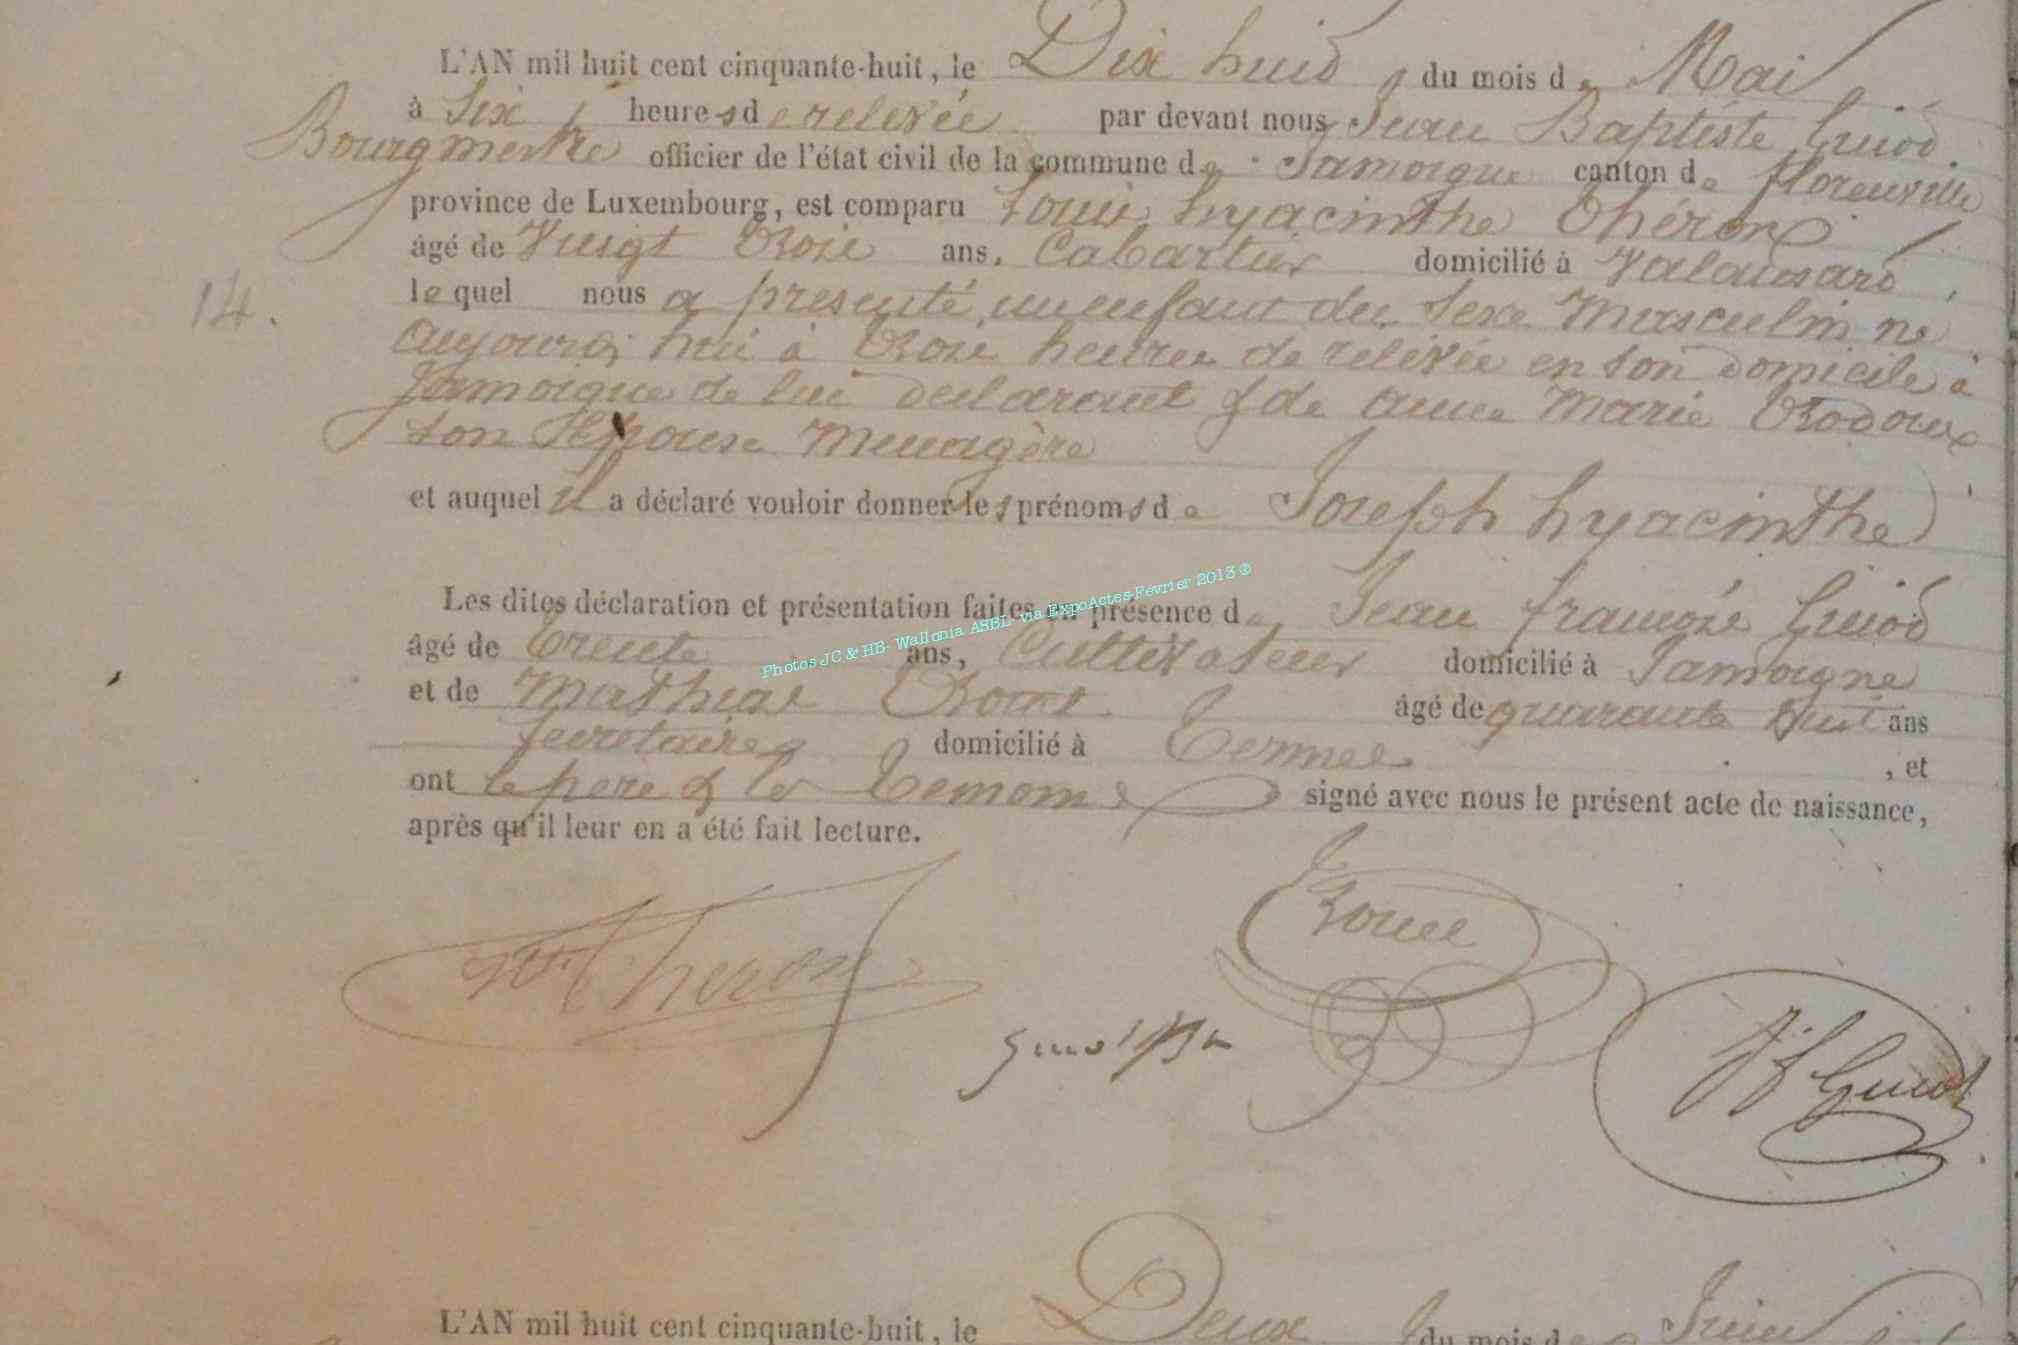 L'AN mil huit cent cinquante-huit, le Dix huit du mois de Mai
à Six heures de relevée par devant nous Jean Baptiste Guiot
Bourgmestre officier de l'état civil de la commune de Jamoigne canton de florenville
province de Luxembourg, est comparu Louis hyacinthe Théron
âgé de Vingt Trois ans, Cabartier domicilié à Valansard,
14.
lequel nous a presenté un enfant du Sexe Masculin né
aujourd'hui à Trois heures de relevée en son domicile à
Jamoigne de lui declarant & de anne Marie
son Epouse Menagère
et auquel il a déclaré vouloir donner les prénoms de Joseph hyacinthe
Les dites déclaration et présentation faites en présence de Jean françois Guiot
Photos JC & HB- Wallonia ASBL- via ExpoActes-Février 2013 ®
âgé de Trente ans, Cultivateur domicilié à Jamoigne
et de Mathias âgé de quarante huit ans
Secretaire domicilié à Termes , et
ont le pere & les Temoins signé avec nous le présent acte de naissance,
après qu'il leur en a été fait lecture.
Theron
JF Guiot
L'AN mil huit cent cinquante-huit, le Deux du mois de Juin